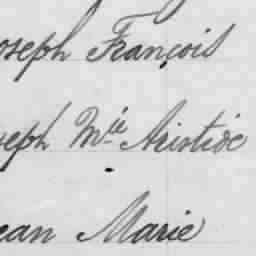 oseph François
seph Mie Aristide
ean Marie